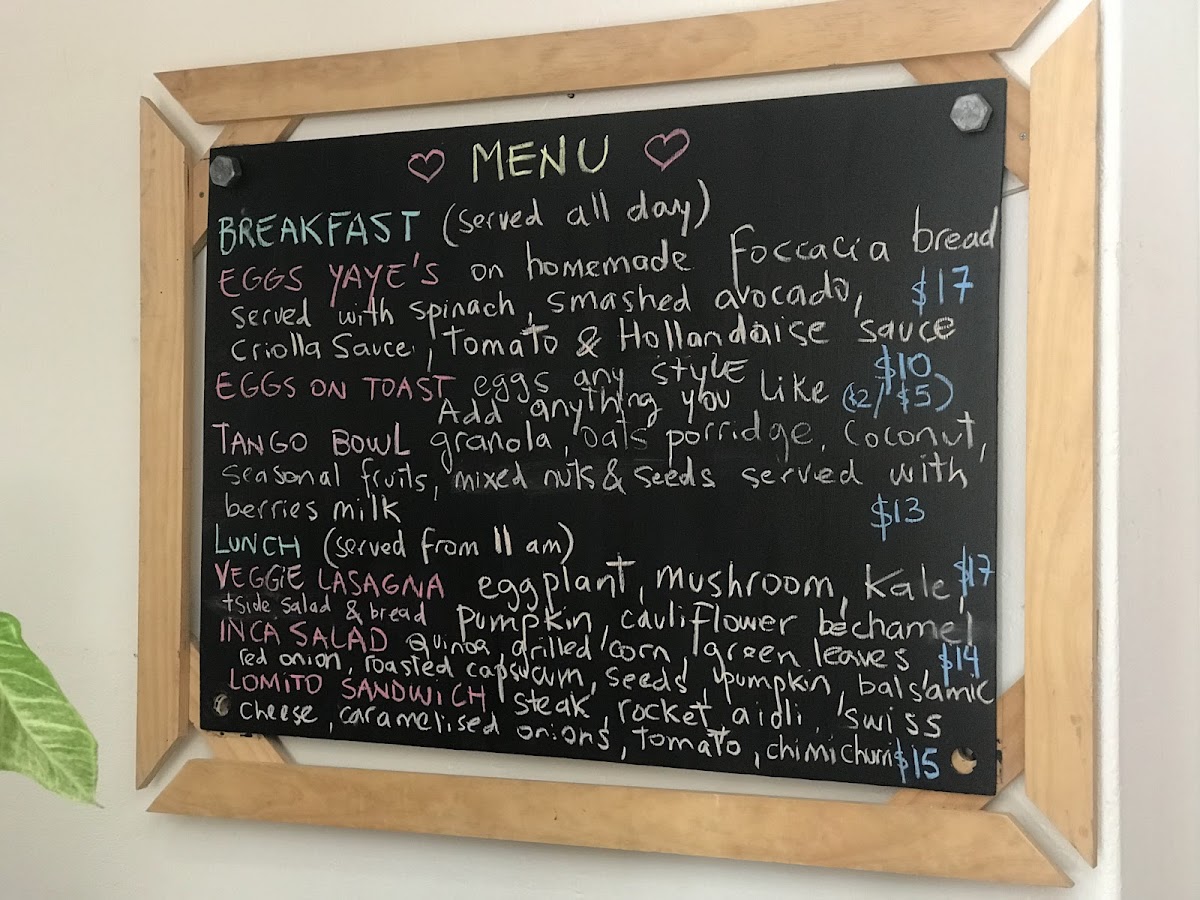 ♡ MENU ♡
BREAKFAST (served all day)
EGGS YAYE'S on homemade Foccacia bread
served with spinach, smashed avocado, $17
Criolla Sauce, Tomato & Hollandaise sauce
EGGS ON TOAST eggs any style $10
Add anything you like ($2/$5)
TANGO BOWL granola, oats porridge, coconut,
seasonal fruits, mixed nuts & seeds served with
berries milk $13
LUNCH (served from 11 am)
VEGGIE LASAGNA eggplant, mushroom, kale, $17
+side salad & bread pumpkin, cauliflower béchamel
INCA SALAD quinoa, grilled corn, green leaves, $14
red onion, roasted capsicum, seeds, pumpkin, balsamic
LOMITO SANDWICH steak, rocket, aioli, swiss
cheese, caramelised onions, tomato, chimichurri $15